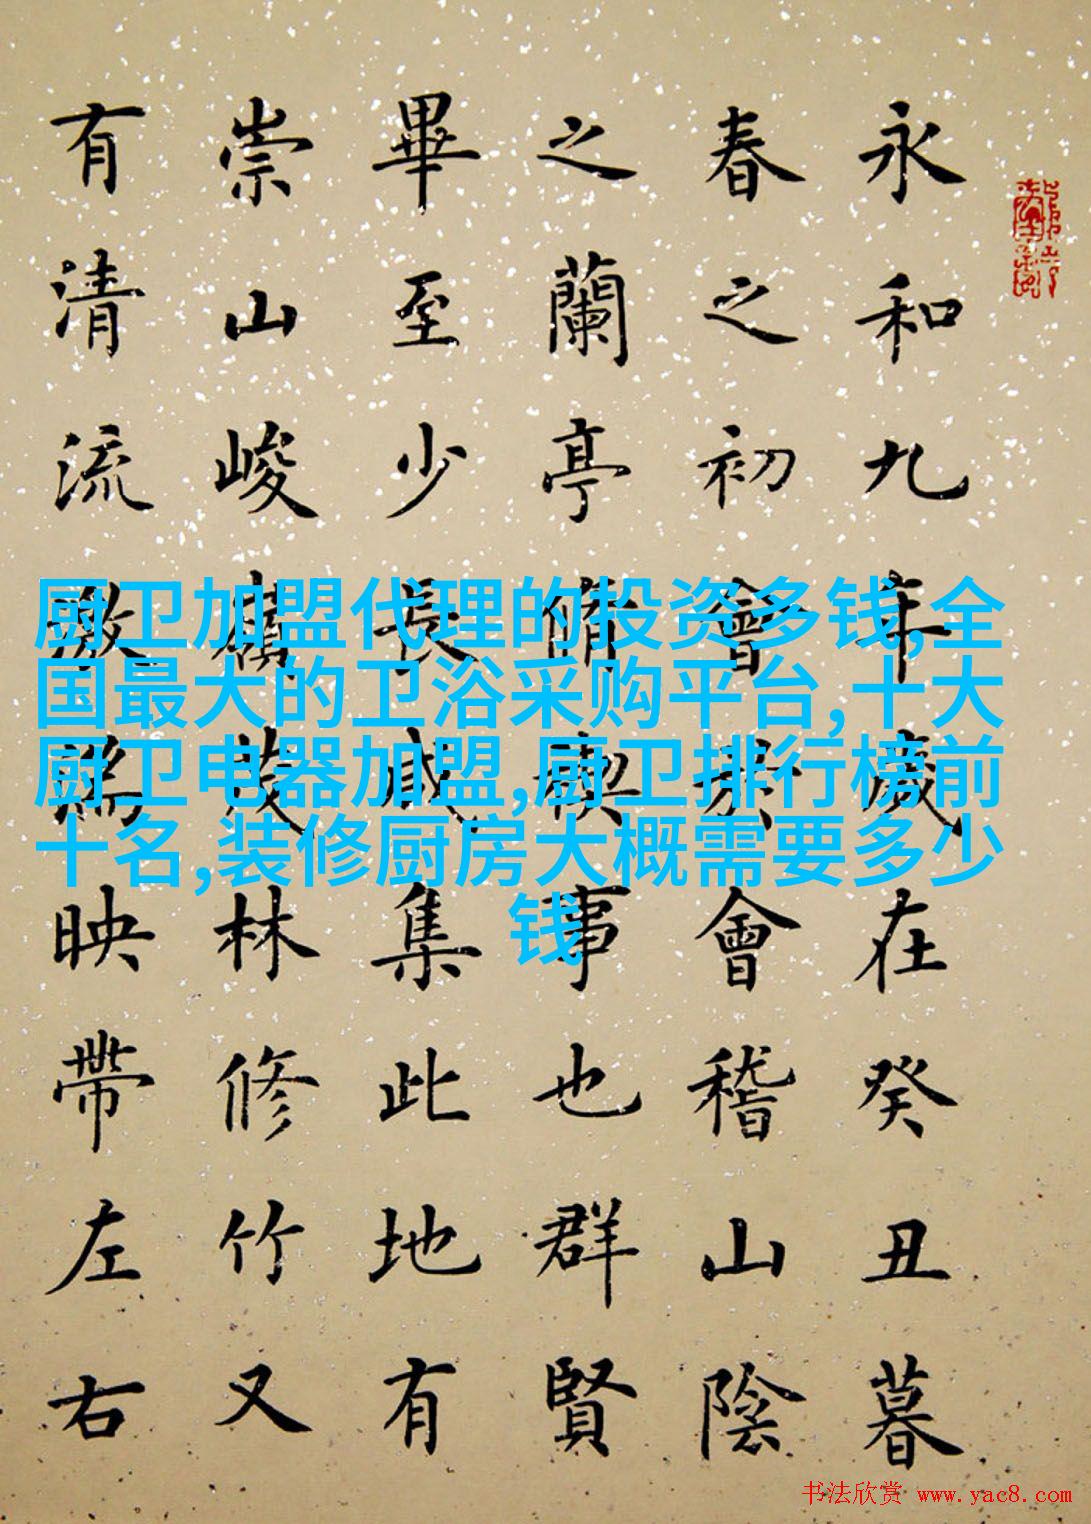 永和九年歲在癸丑暮
春之初會於會稽山陰
之蘭亭脩禊事也群賢
畢至少長咸集此地有
崇山峻嶺茂林修竹又
有清流激湍映帶左右
厨卫加盟代理的投资多钱,全
国最大的卫浴采购平台,十大
厨卫电器加盟,厨卫排行榜前
十名,装修厨房大概需要多少
钱
书法欣赏 www.yac8.com